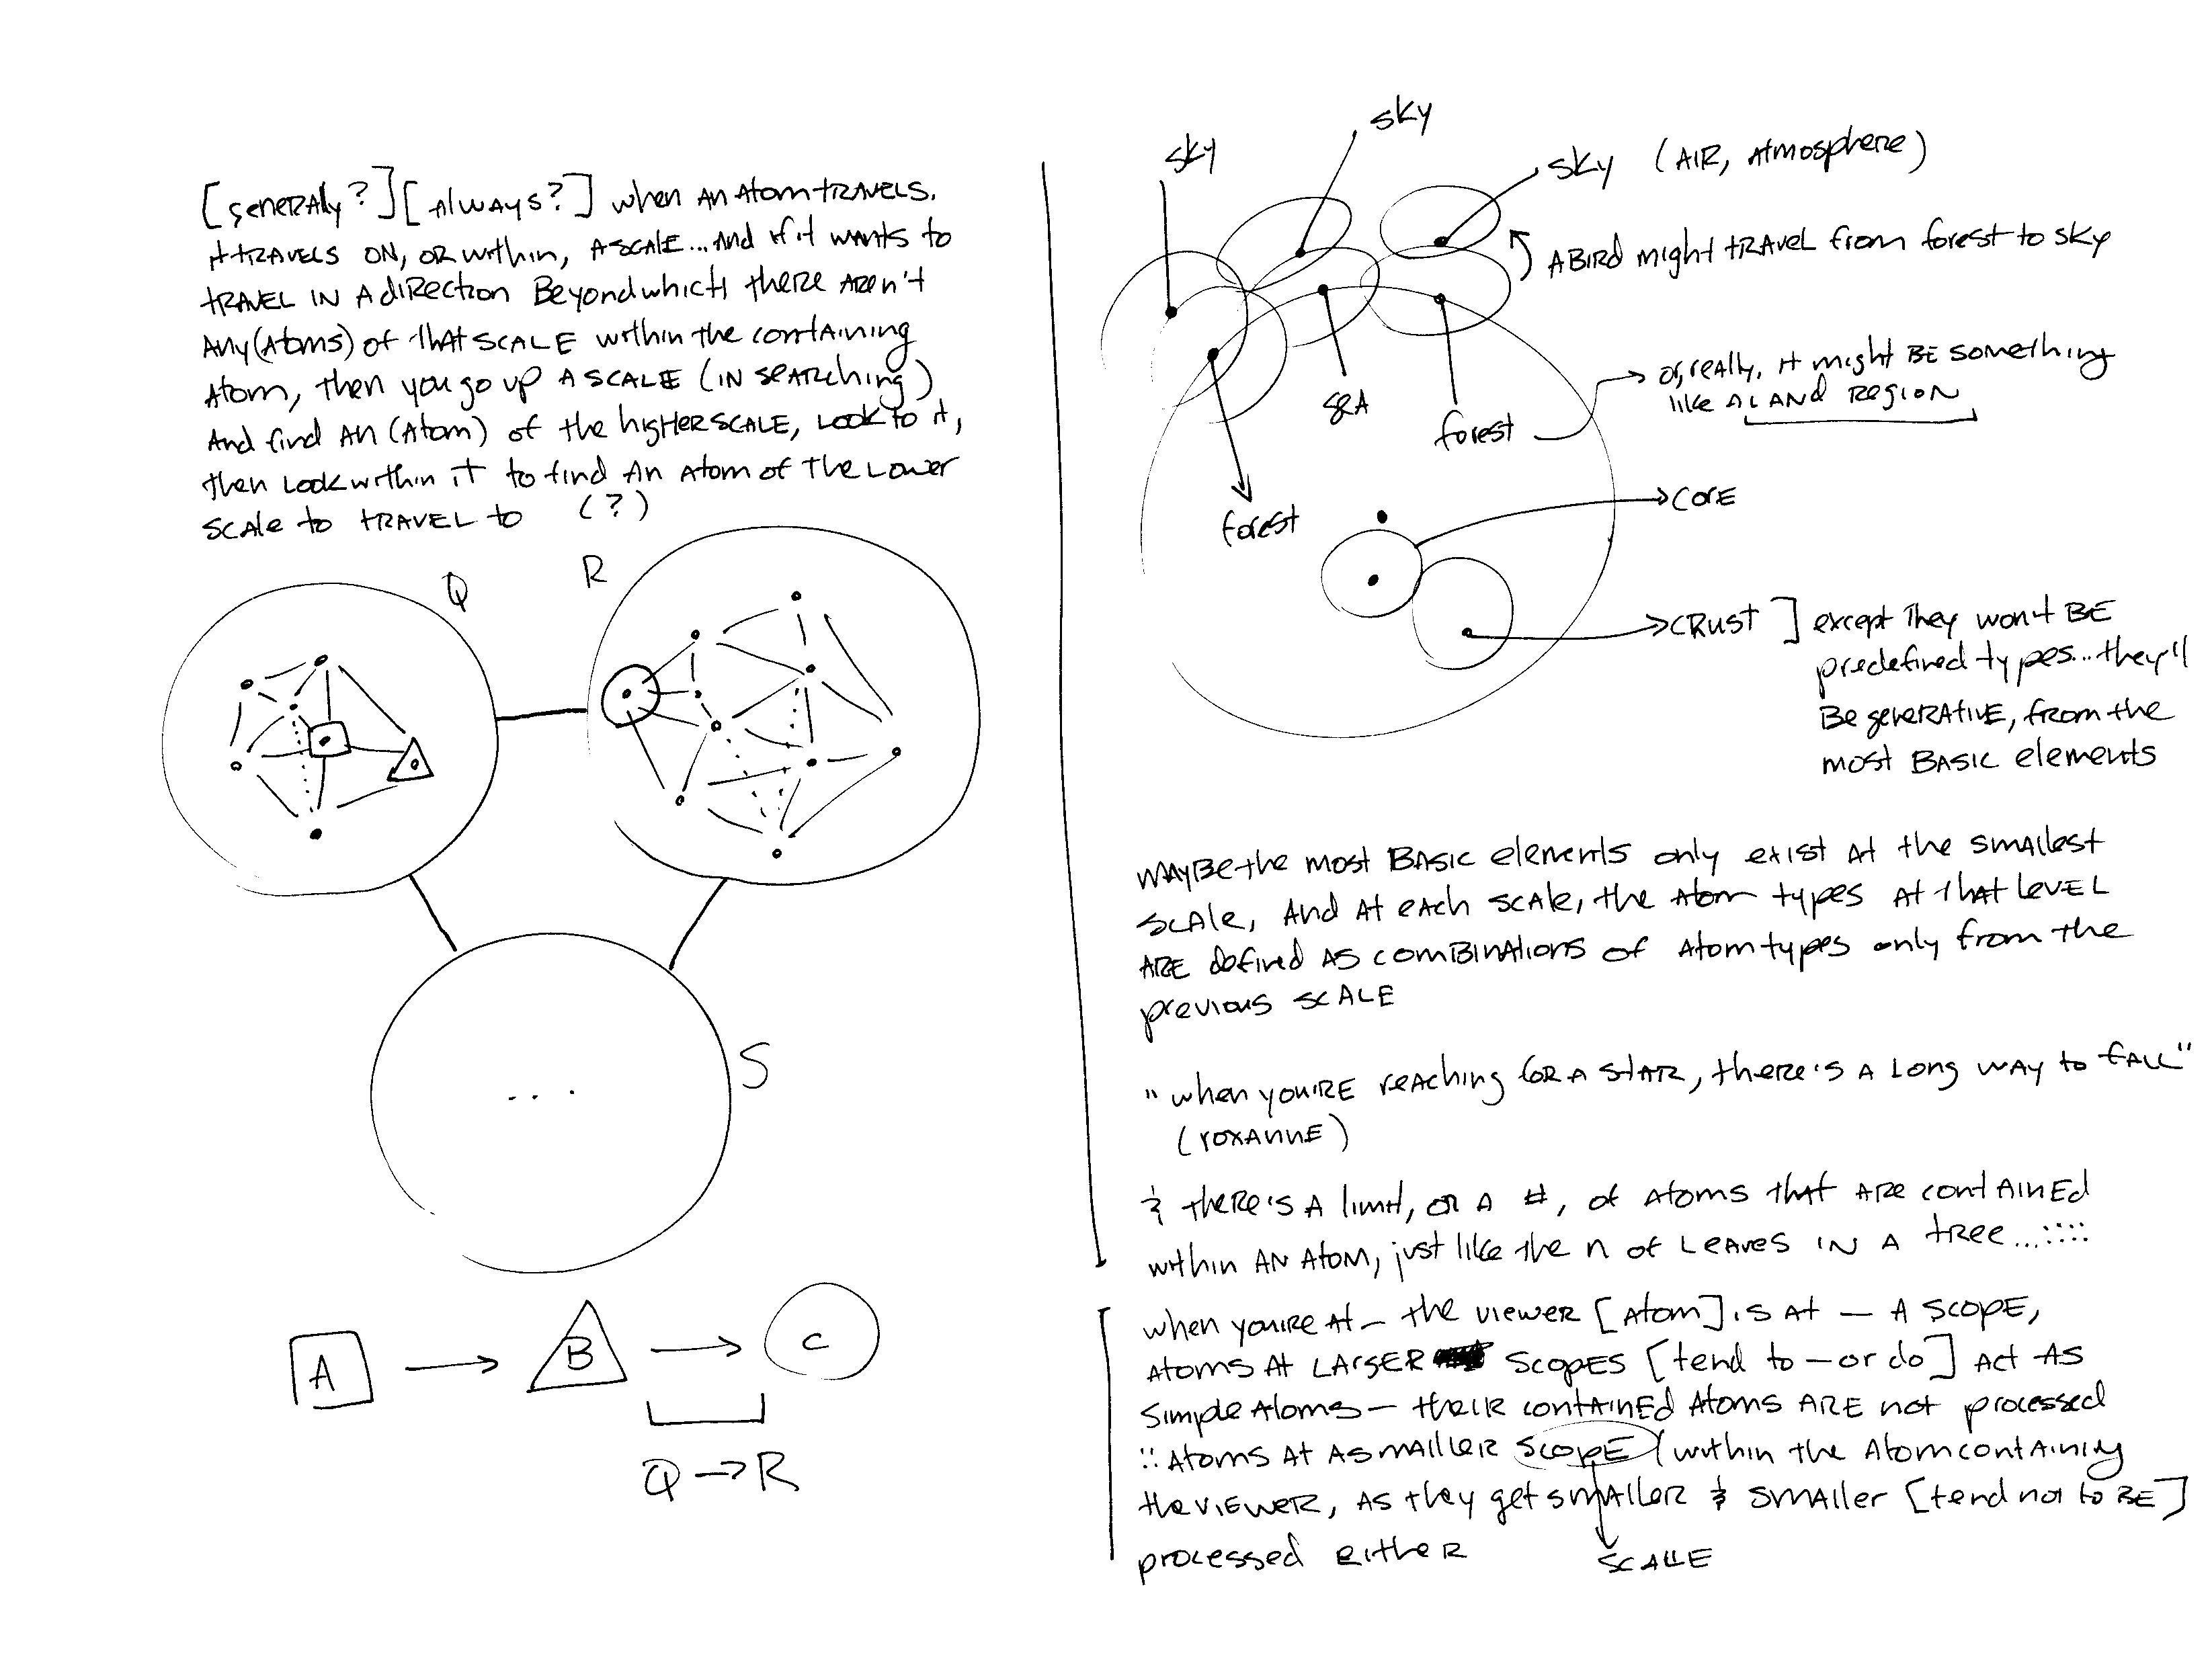 [generally?][always?] when an atom travels.
it travels on, or within, a scale...and if it wants to
travel in a direction beyond which there aren't
any (atoms) of that scale within the containing
atom, then you go up a scale (in searching)
and find an (atom) of the higher scale, look to it,
then look within it to find an atom of the lower
scale to travel to (?)
Q
R
S
...
A → B → C
Q → R
sky
sky
sky (air, atmosphere)
a bird might travel from forest to sky
or, really, it might be something
like a land region
sea
forest
forest
core
crust ] except they won't be
predefined types...they'll
be generative, from the
most basic elements
maybe the most basic elements only exist at the smallest
scale, and at each scale, the atom types at that level
are defined as combinations of atom types only from the
previous scale
"when you're reaching for a star, there's a long way to fall"
(roxanne)
& there's a limit, or a #, of atoms that are contained
within an atom, just like the n of leaves in a tree...::::
when you're at – the viewer [atom] is at – a scope,
atoms at larger scopes [tend to – or do] act as
simple atoms – their contained atoms are not processed
:: atoms at a smaller scope (within the atom containing
the viewer, as they get smaller & smaller [tend not to be]
processed either
scale